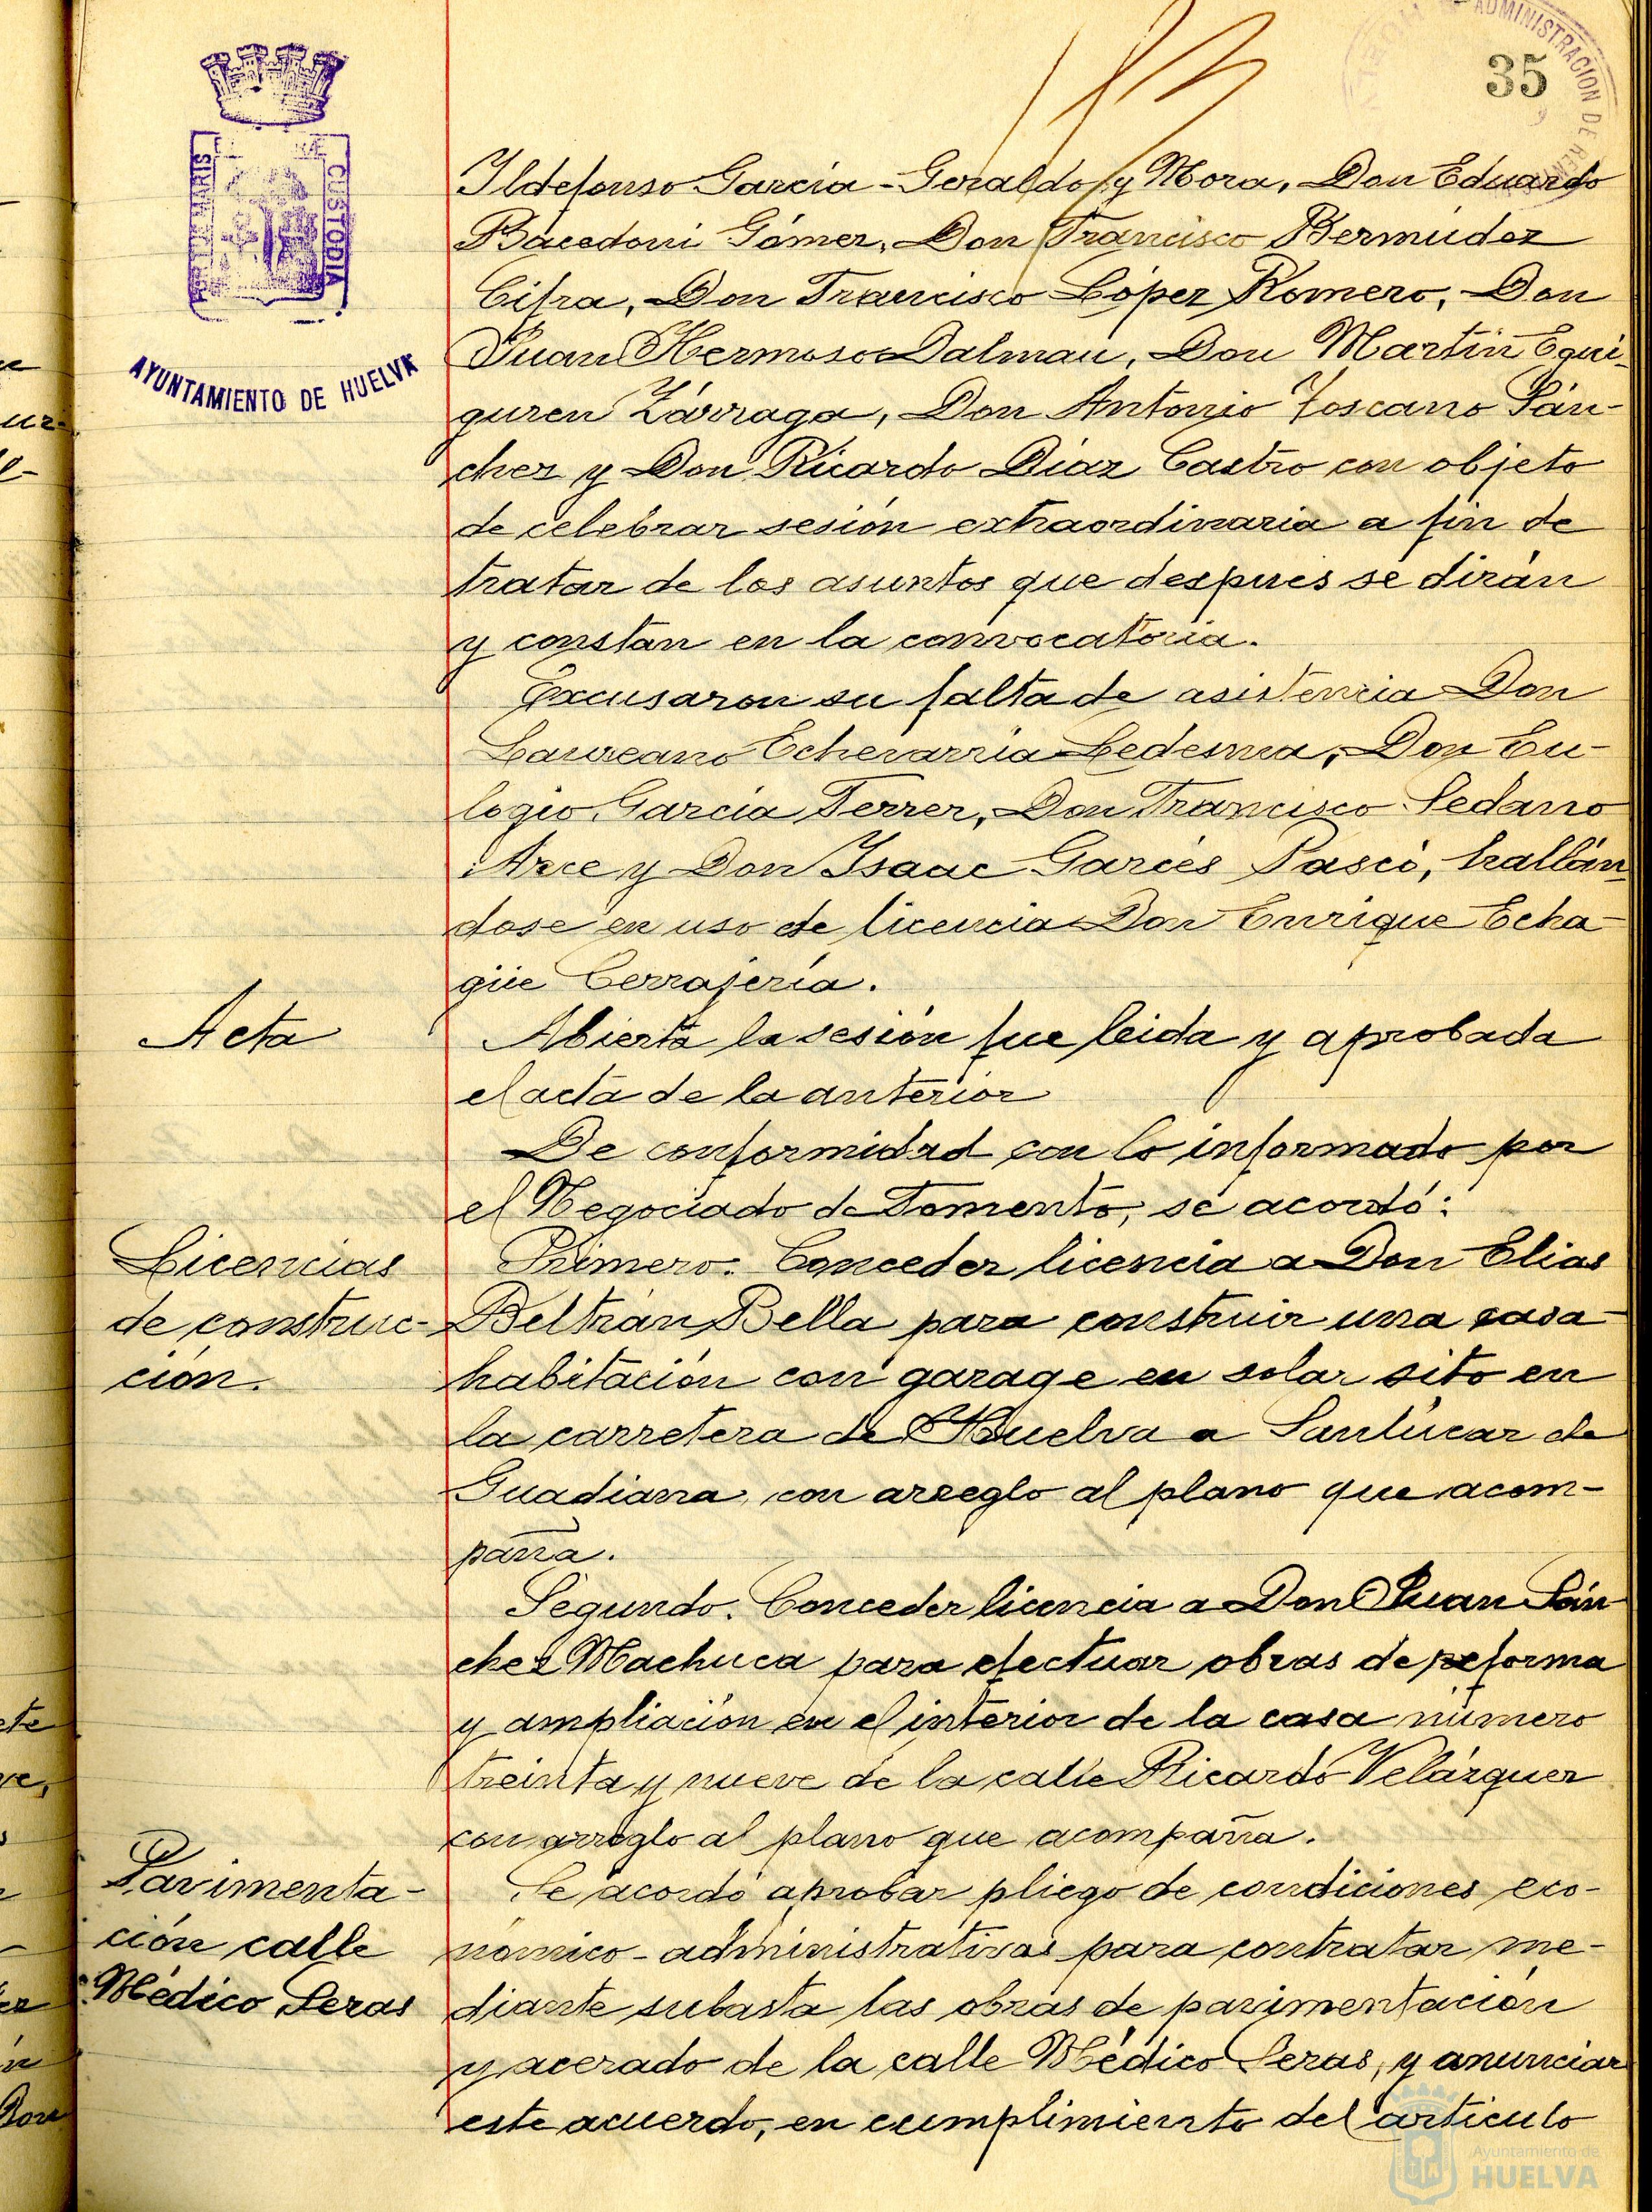 ADMINISTRACION DE RENTAS
35
PORTUS MARIS
CUSTODIA
AYUNTAMIENTO DE HUELVA
Ildefonso García-Geraldo y Mora, Don Eduardo
Bacedoni Gómez, Don Francisco Bermúdez
Cifra, Don Francisco López Romero, Don
Juan Hermoso Dalmau, Don Martín Egui-
guren Zárraga, Don Antonio Toscano Sán-
chez y Don Ricardo Díaz Castro con objeto
de celebrar sesión extraordinaria a fin de
tratar de los asuntos que después se dirán
y constan en la convocatoria.
Excusaron su falta de asistencia Don
Laureano Echevarria Ledesma, Don Eu-
logio García Ferrer, Don Francisco Sedano
Arce y Don Isaac Garcés Pasció, hallán-
dose en uso de licencia Don Enrique Echa-
güe Cerrajería.
Acta
Abierta la sesión fue leida y aprobada
el acta de la anterior
De conformidad con lo informado por
el Negociado de Fomento, se acordó:
Licencias
de construc-
ción.
Primero. Conceder licencia a Don Elias
Beltrán Bella para construir una casa
habitación con garage en solar sito en
la carretera de Huelva a Sanlúcar de
Guadiana, con arreglo al plano que acom-
paña.
Segundo. Conceder licencia a Don Juan Sán-
chez Machuca para efectuar obras de reforma
y ampliación en el interior de la casa número
treinta y nueve de la calle Ricardo Velázquez
con arreglo al plano que acompaña.
Pavimenta-
ción calle
Médico Seras
Se acordó aprobar pliego de condiciones eco-
nómico-administrativas para contratar me-
diante subasta las obras de pavimentación
y acerado de la calle Médico Seras, y anunciar
este acuerdo, en cumplimiento del artículo
Ayuntamiento de
HUELVA